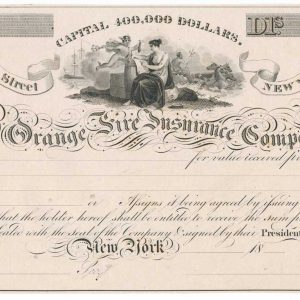 CAPITAL 400,000 DOLLARS.
D1s
Street
NEW
Orange Fire Insurance Comp
for value received pr
or Assigns it being agreed by issuing
that the holder hereof shall be entitled to receive the sum
sealed with the seal of the Company & signed by their President
New York 18